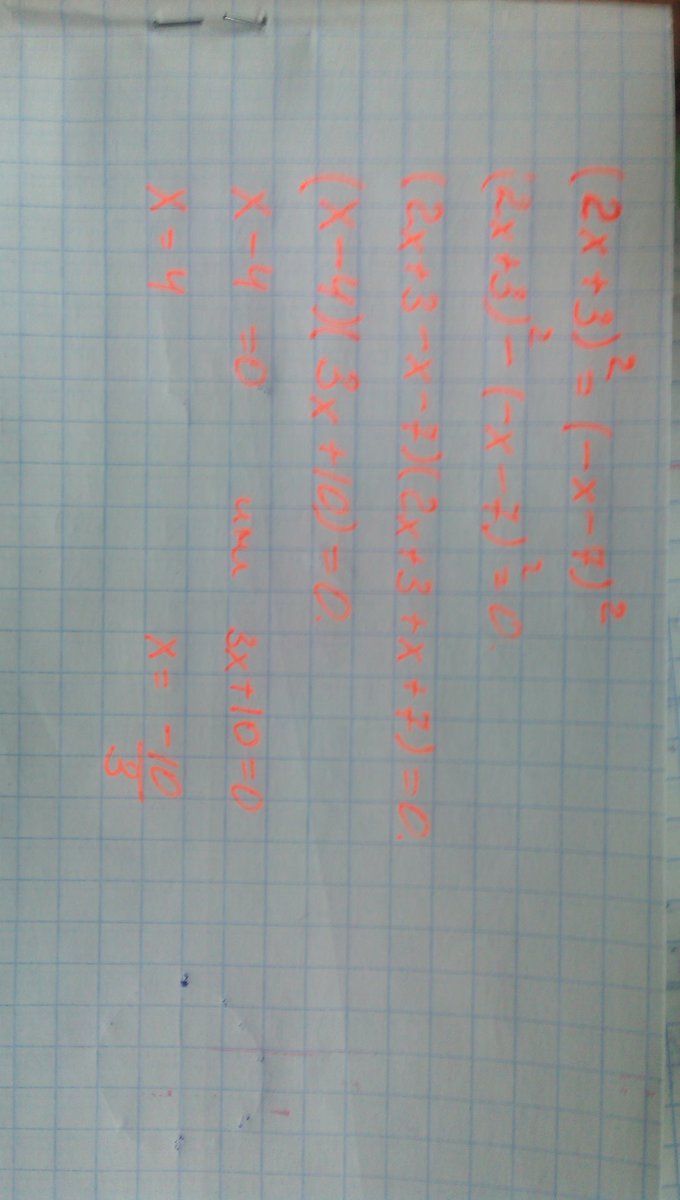 (2x+3)² = (-x-7)²
(2x+3)² - (-x-7)² = 0.
(2x+3-x-7)(2x+3+x+7) = 0.
(x-4)(3x+10) = 0.
x-4 =0 или 3x+10=0
x=4 x= -10/3